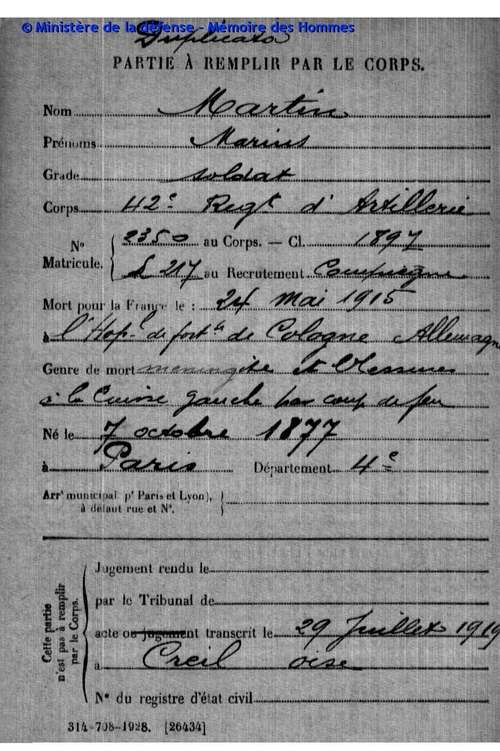 © Ministère de la défense - Mémoire des Hommes
Duplicata
PARTIE À REMPLIR PAR LE CORPS.
Nom Martin
Prénoms Marius
Grade soldat
Corps 42e Regt d'Artillerie
N° Matricule. 2350 au Corps. — Cl. 1897
L 217 au Recrutement Compiègne
Mort pour la France le : 24 mai 1915
à l'Hop. de fort. de Cologne Allemagne
Genre de mort meningite et blessures
à la Cuisse gauche par coup de feu
Né le 7 octobre 1877
à Paris Département 4e
Arrt municipal pr Paris et Lyon),
à défaut rue et N°.
Cette partie n'est pas à remplir par le Corps.
Jugement rendu le
par le Tribunal de
acte ou jugement transcrit le 29 Juillet 1919
à Creil oise
N° du registre d'état civil
314-708-1928. [26434]